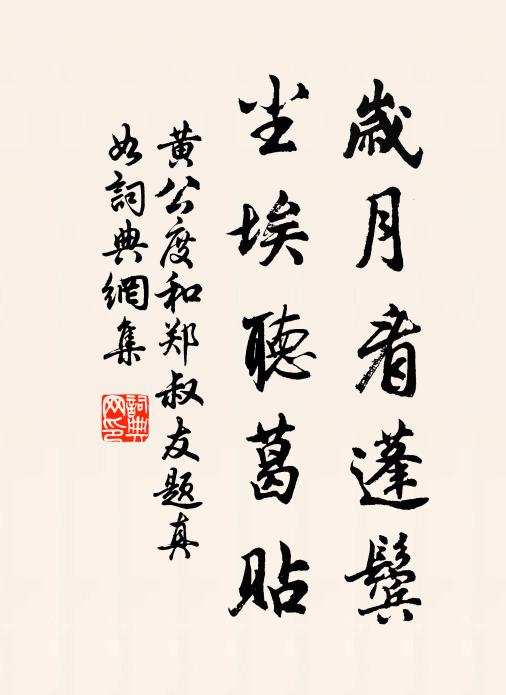 歲月看蓬鬢
尘埃聽葛貼
黄公度和郑叔友題真
如詞典網集
詞典
网印